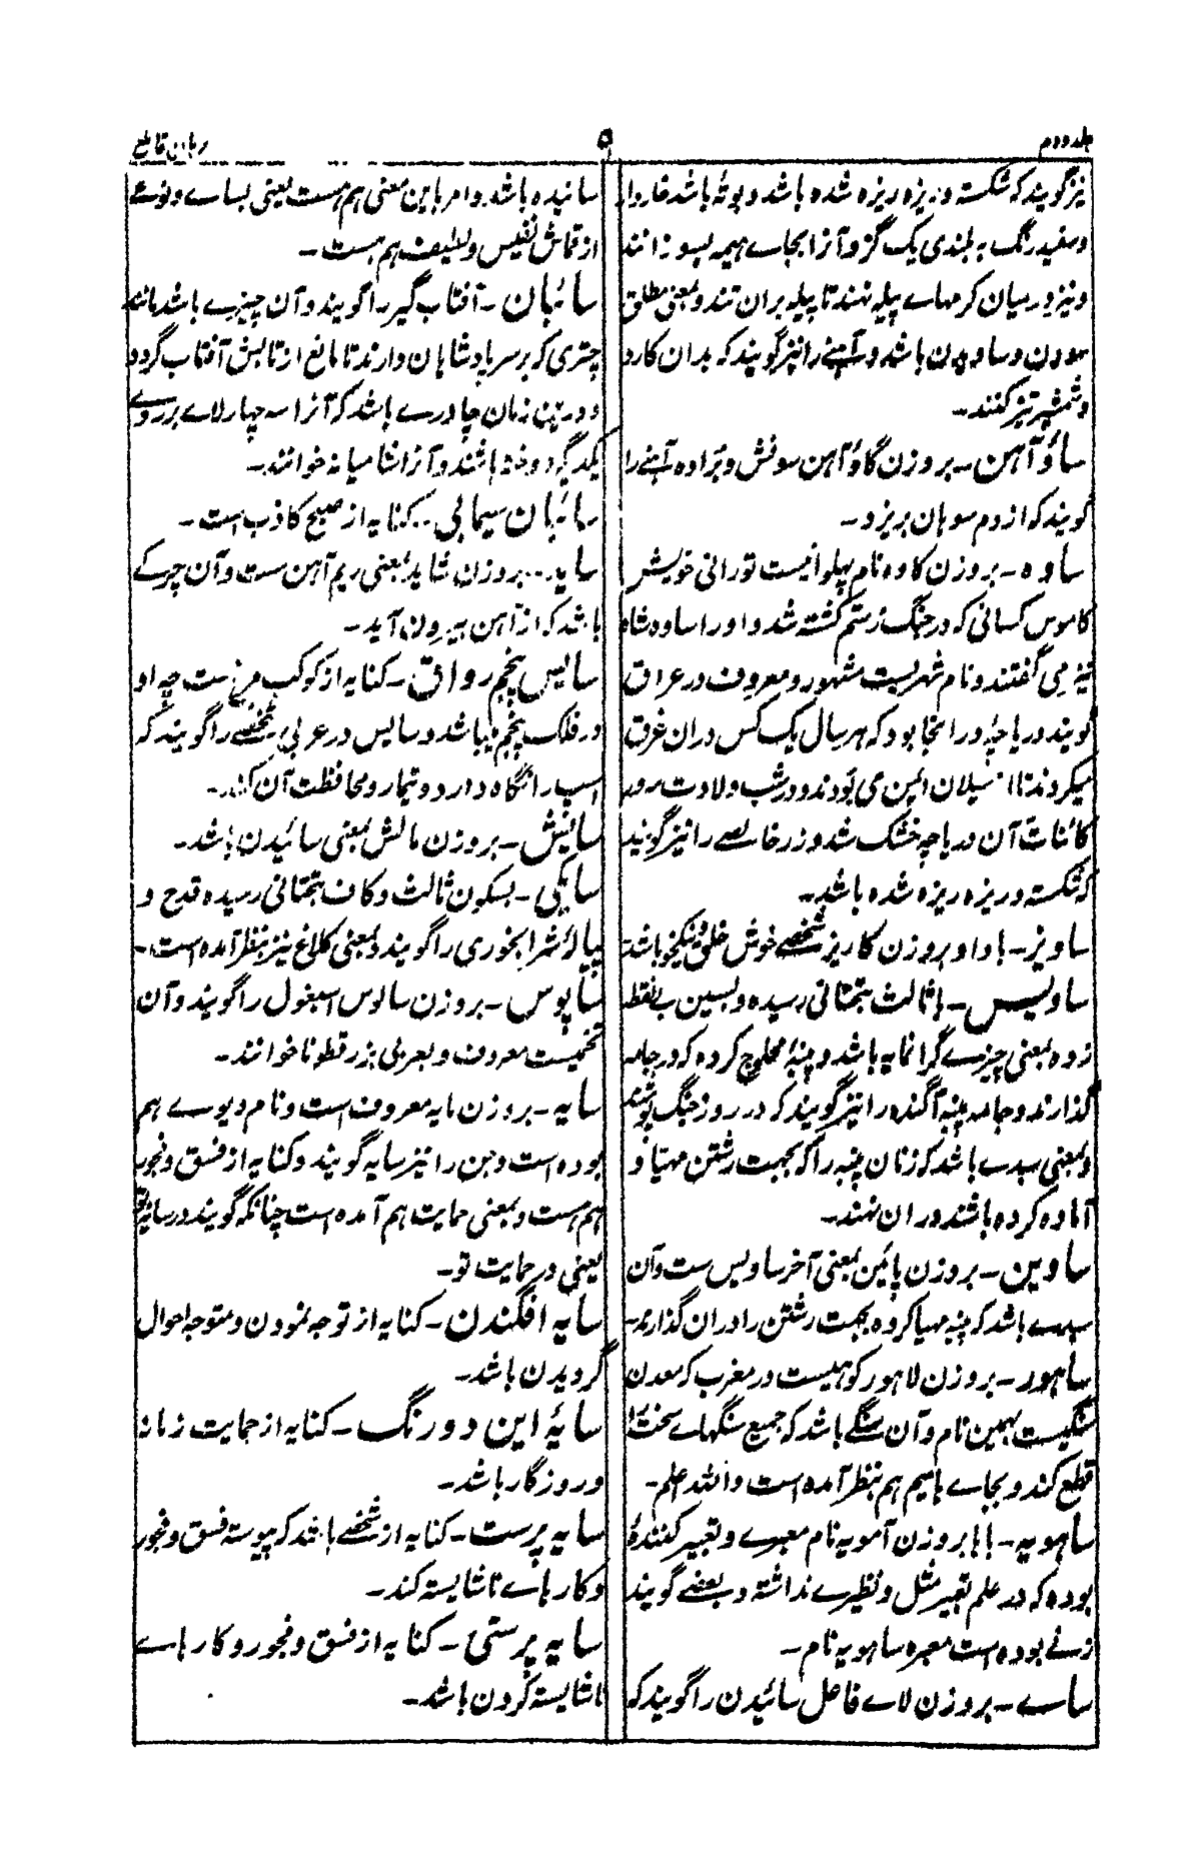 جلد دوم
۵
برہان قاطع
نیز گویند که شکسته و ریزه ریزه شده باشد و بوتهٔ باشد خاردار
و سفید رنگ به بلندی یک گز و آنرا بجاے ہیمه بسوزانند
و نیز درمیان کرمہاے پیله نہند تا پیله بران تند و بمعنی مطلق
سودن و ساویدن باشد و آہنے را نیز گویند که بدان کارد
و شمشیر تیز کنند۔
ساؤ آہن۔ بروزن گاؤ آہن سونش و بُرادہ آہنے را
گویند که از دم سوہان بریزد۔
ساوہ۔ بروزن کاوہ نام پہلوانیست تورانی خویش
کاموس کسانی که در جنگ رستم کشته شد و او را ساوہ شاہ
نیز می گفتند و نام شہریست مشہور و معروف در عراق
گویند دریاچهٔ در انجا بود که ہر سال یک کس دران غرق
میکردند تا از سیلان ایمن می بودند و در شب ولادت سرور
کائنات آن دریاچه خشک شد و زر خالصے را نیز گویند
که شکسته و ریزہ ریزہ شدہ باشد۔
ساویز۔ با واو بروزن کاریز شخصے خوش خلق و نیکخو باشد
ساویس۔ با ثالث بتحتانی رسیدہ و بسین بے نقطه
زدہ بمعنی چیزے گرانمایه باشد و پنبهٔ محلوج کردہ که در جامه
گذارند و جامه پنبه آگندہ را نیز گویند که در روز جنگ پوشند
و بمعنی سبدے باشد که زنان پنبه را که بجہت رشتن مہیا و
آمادہ کردہ باشند دران نہند۔
ساوین۔ بروزن پائین بمعنی آخر ساویس ست و آن
سبدے باشد که پنبه مہیا کردہ بجہت رشتن را دران گذارند۔
ساہور۔ بروزن لاہور کوہیست در مغرب که معدن
سنگیست بہمین نام و آن سنگے باشد که جمیع سنگہاے سخت را
قطع کند و بجاے ہا میم ہم بنظر آمدہ است واللہ اعلم۔
ساہویه۔ با ہا بروزن آمویه نام معبرے و تعبیر کنندۂ
بودہ که در علم تعبیر مثل و نظیرے نداشته و بعضے گویند
زنے بودہ است معبرہ ساہویه نام۔
ساے۔ بروزن لاے فاعل سائیدن را گویند که
سائیدہ باشد و امر باین معنی ہم ہست یعنی بساے و نوعے
از قماش نفیس و لطیف ہم ہست۔
سائبان۔ آفتاب گیر را گویند و آن چیزے باشد مانند
چتری که بر سر پادشاہان دارند تا مانع از تابش آفتاب گردد
و درین زمان چادرے باشد که آنرا سه چہار لاے بر روے
یکدیگر دوخته باشند و آنرا شامیانه خوانند۔
سائبان سیمابی۔ کنایه از صبح کاذب است۔
ساید۔ بروزن شاید بمعنی ریم آہن ست و آن چرکے
باشد که از آہن بیرون آید۔
سایس پنجم رواق۔ کنایه از کوکب مریخ ست چه او
در فلک پنجم میباشد و سایس در عربی شخصے را گویند که
اسپ را نگاہ دارد و تیمار و محافظت آن کند۔
سائش۔ بروزن مالش بمعنی سائیدن باشد۔
سایکی۔ بسکون ثالث و کاف بتحتانی رسیدہ قدح و
پیالهٔ شرابخوری را گویند و بمعنی کلاغ نیز بنظر آمدہ است۔
سایوس۔ بروزن سالوس اسبغول را گویند و آن
تخمیست معروف و بعربی بزرقطونا خوانند۔
سایه۔ بروزن مایه معروف است و نام دیوے ہم
بودہ است و جن را نیز سایه گویند و کنایه از فسق و فجور
ہم ہست و بمعنی حمایت ہم آمدہ است چنانکه گویند در سایهٔ تو
یعنی در حمایت تو۔
سایه افگندن۔ کنایه از توجه نمودن و متوجه احوال
گردیدن باشد۔
سایهٔ این دو رنگ۔ کنایه از حمایت زمانه
و روزگار باشد۔
سایه پرست۔ کنایه از شخصے باشد که پیوسته فسق و فجور
و کارہاے ناشایسته کند۔
سایه پرستی۔ کنایه از فسق و فجور و کارہاے
ناشایسته کردن باشد۔